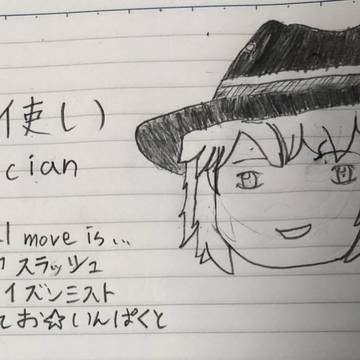 使い)
cian
l move is...
スラッシュ
イズンミスト
てお☆いんぱくと